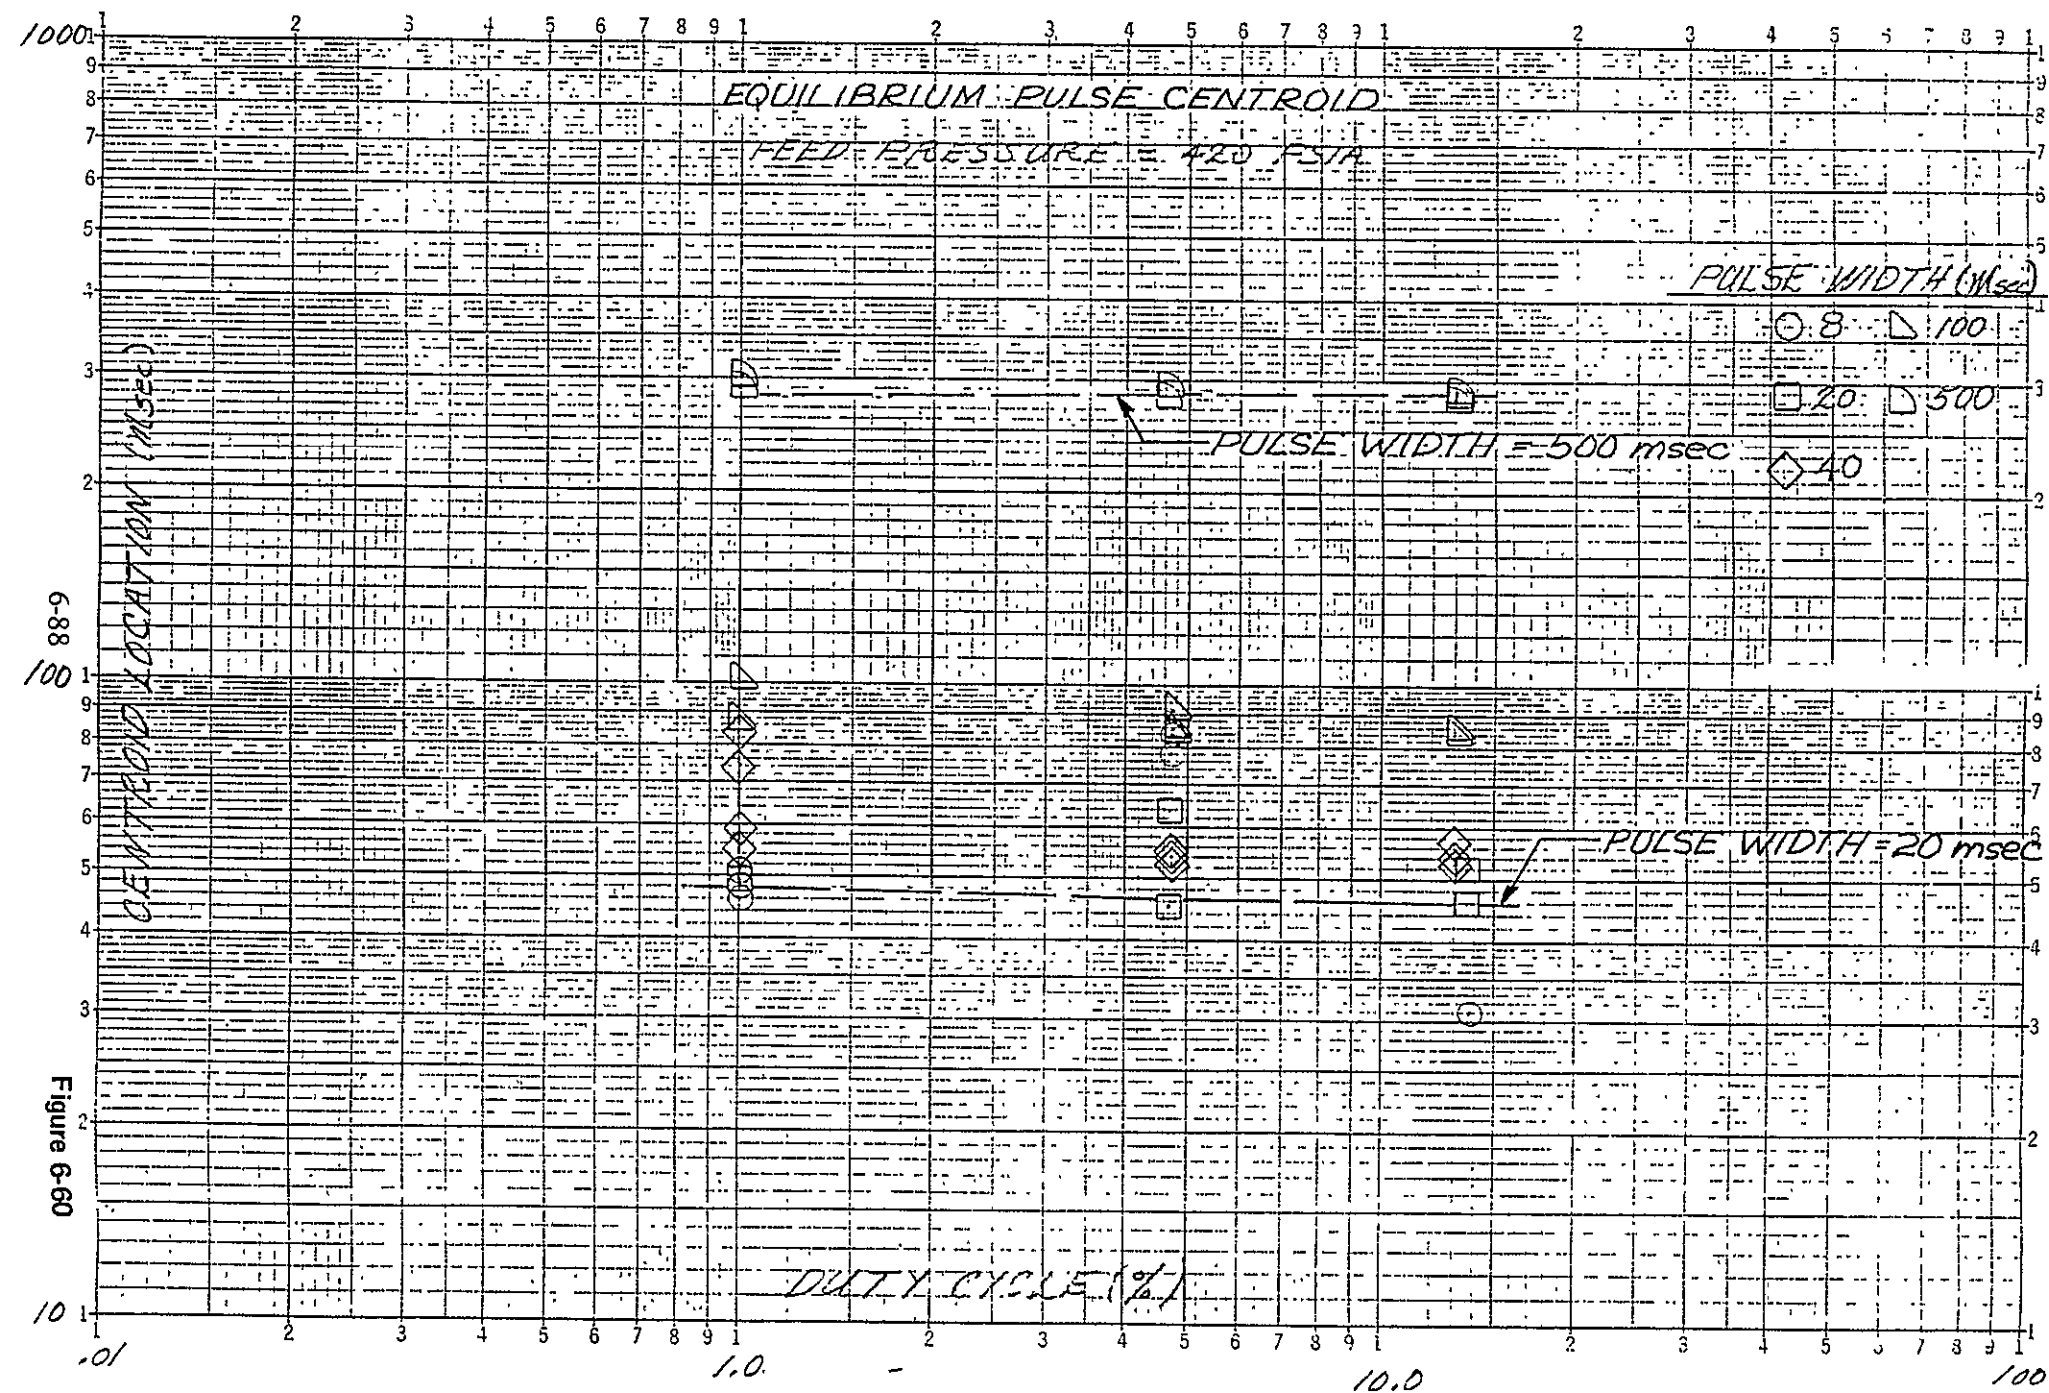 1 2 3 4 5 6 7 8 9 1 2 3 4 5 6 7 8 9 1 2 3 4 5 6 7 8 9 1
1000 1
9
8
7
6
5
4
3
2
100 1
9
8
7
6
5
4
3
2
10 1
EQUILIBRIUM PULSE CENTROID
FEED PRESSURE = 420 PSIA
PULSE WIDTH (Msec)
8 100
20 500
40
PULSE WIDTH = 500 msec
PULSE WIDTH = 20 msec
CENTROID LOCATION (Msec)
1
9
8
7
6
5
1
3
2
1
9
8
7
6
5
4
3
2
1
DUTY CYCLE (%)
1 2 3 4 5 6 7 8 9 1 2 3 4 5 6 7 8 9 1 2 3 4 5 6 7 8 9 1
.01 1.0 10.0 100
6-88
Figure 6-60